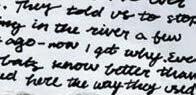 They told us to stop
in the river a few
ago - now I get why. Even
know better than
here the way they used